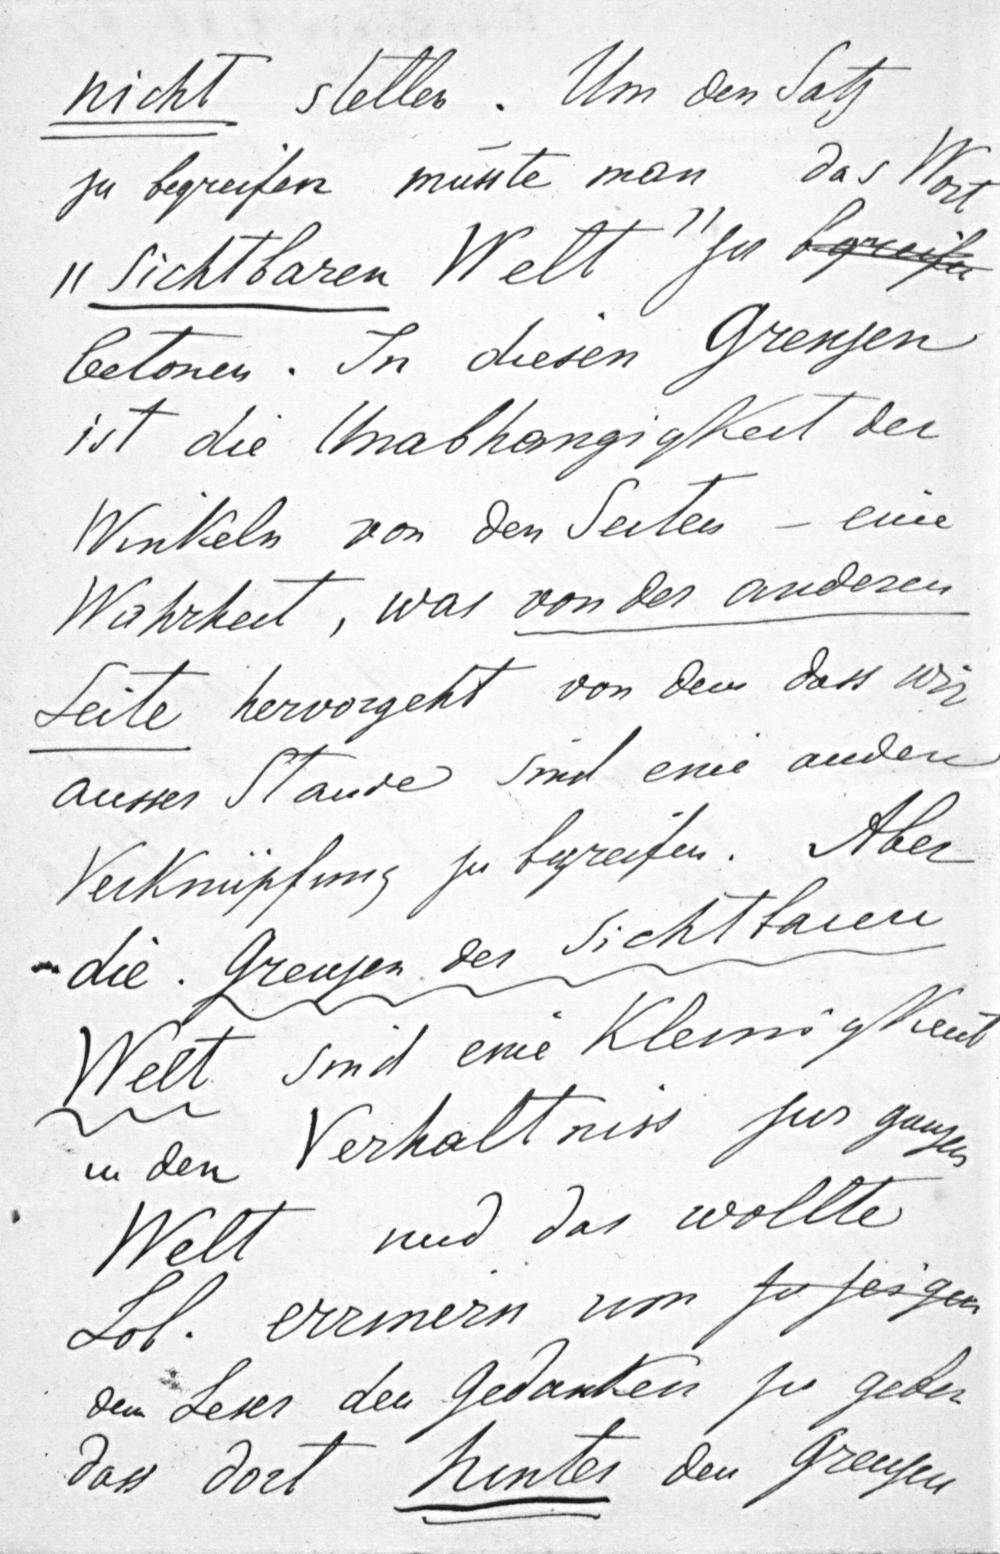 nicht stellen. Um den Satz
zu begreifen müsste man das Wort
„sichtbaren Welt" zu begreifen
betonen. In diesen Grenzen
ist die Unabhangigkeit der
Winkeln von den Seiten – eine
Wahrheit, was von der anderen
Seite hervorgeht von dem dass wir
ausser Stande sind eine andere
Verknüpfung zu begreifen. Aber
die. Grenzen der sichtbaren
Welt sind eine Kleinigkeit
in den Verhaltniss zur ganzen
Welt und das wollte
Lob. errinern um zu zeigen
dem Leser den Gedanken zu geben
dass dort hinter den Grenzen